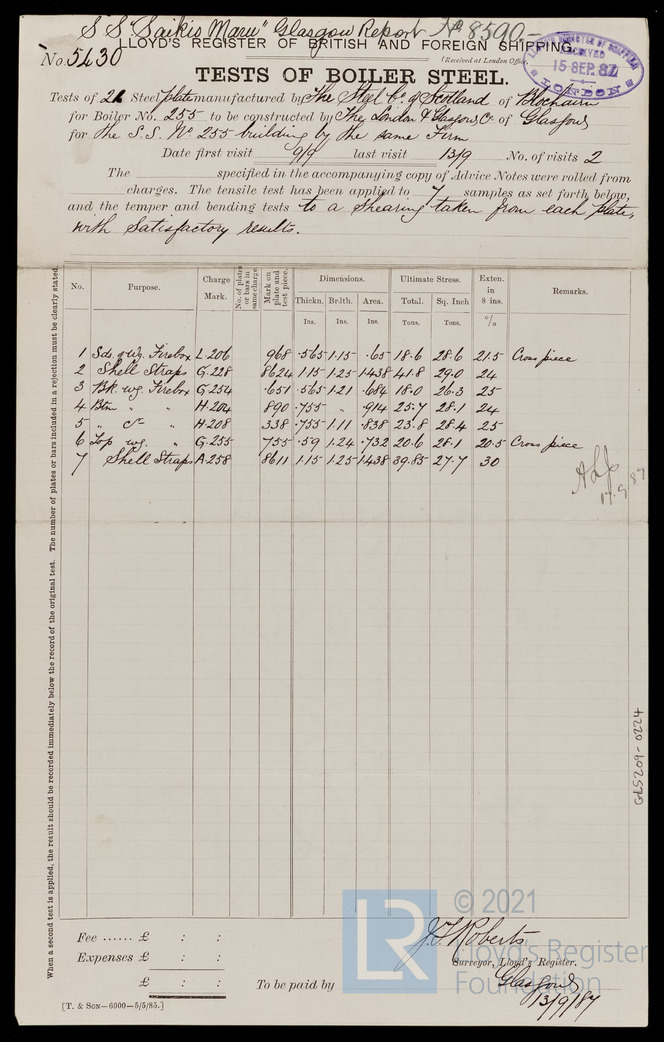 S.S. "Saikio Maru" Glasgow Report No 8590
LLOYD'S REGISTER OF BRITISH AND FOREIGN SHIPPING.
No. 5430
(Received at London Office,
LLOYD'S REGISTER OF SHIPPING
RECEIVED
15 SEP. 87
LONDON
TESTS OF BOILER STEEL.
Tests of 21 Steel plate manufactured by The Steel Co. of Scotland of Blochairn
for Boiler No. 255 to be constructed by The London & Glasgow Co. of Glasgow
for the S.S. No. 255 building by the same Firm
Date first visit 9/9 last visit 13/9 No. of visits 2
The specified in the accompanying copy of Advice Notes were rolled from
charges. The tensile test has been applied to 7 samples as set forth below,
and the temper and bending tests to a shearing taken from each plate,
with satisfactory results.
When a second test is applied, the result should be recorded immediately below the record of the original test. The number of plates or bars included in a rejection must be clearly stated.
No. Purpose. Charge Mark. No. of plates or bars in same charge. Mark on plate and test piece. Dimensions. Ultimate Stress. Exten. in 8 ins. Remarks.
Thickn. Br.lth. Area. Total. Sq. Inch
Ins. Ins. Ins. Tons. Tons. %
1 Sds. & Wg. Firebox L.206 968 .565 1.15 .65 18.6 28.6 21.5 Cross piece
2 Shell Straps G.228 8624 1.15 1.25 1.438 41.8 29.0 24
3 Bk. wg. Firebox G.254 .651 .565 1.21 .684 18.0 26.3 25
4 Btm " " H.204 890 .755 " .914 25.7 28.1 24
5 " C " H.208 338 .755 1.11 .838 23.8 28.4 25
6 Top wg. " G.255 755 .59 1.24 .732 20.6 28.1 20.5 Cross piece
7 Shell Straps A.258 8611 1.15 1.25 1.438 39.85 27.7 30
17.9.87
GLS209-0224
Fee ...... £ : :
Expenses £ : :
£ : :
To be paid by
J. F. Roberts
Surveyor, Lloyd's Register.
Glasgow
13/9/87
[T. & SON—6000—5/5/85.]
LR
© 2021
Lloyd's Register
Foundation